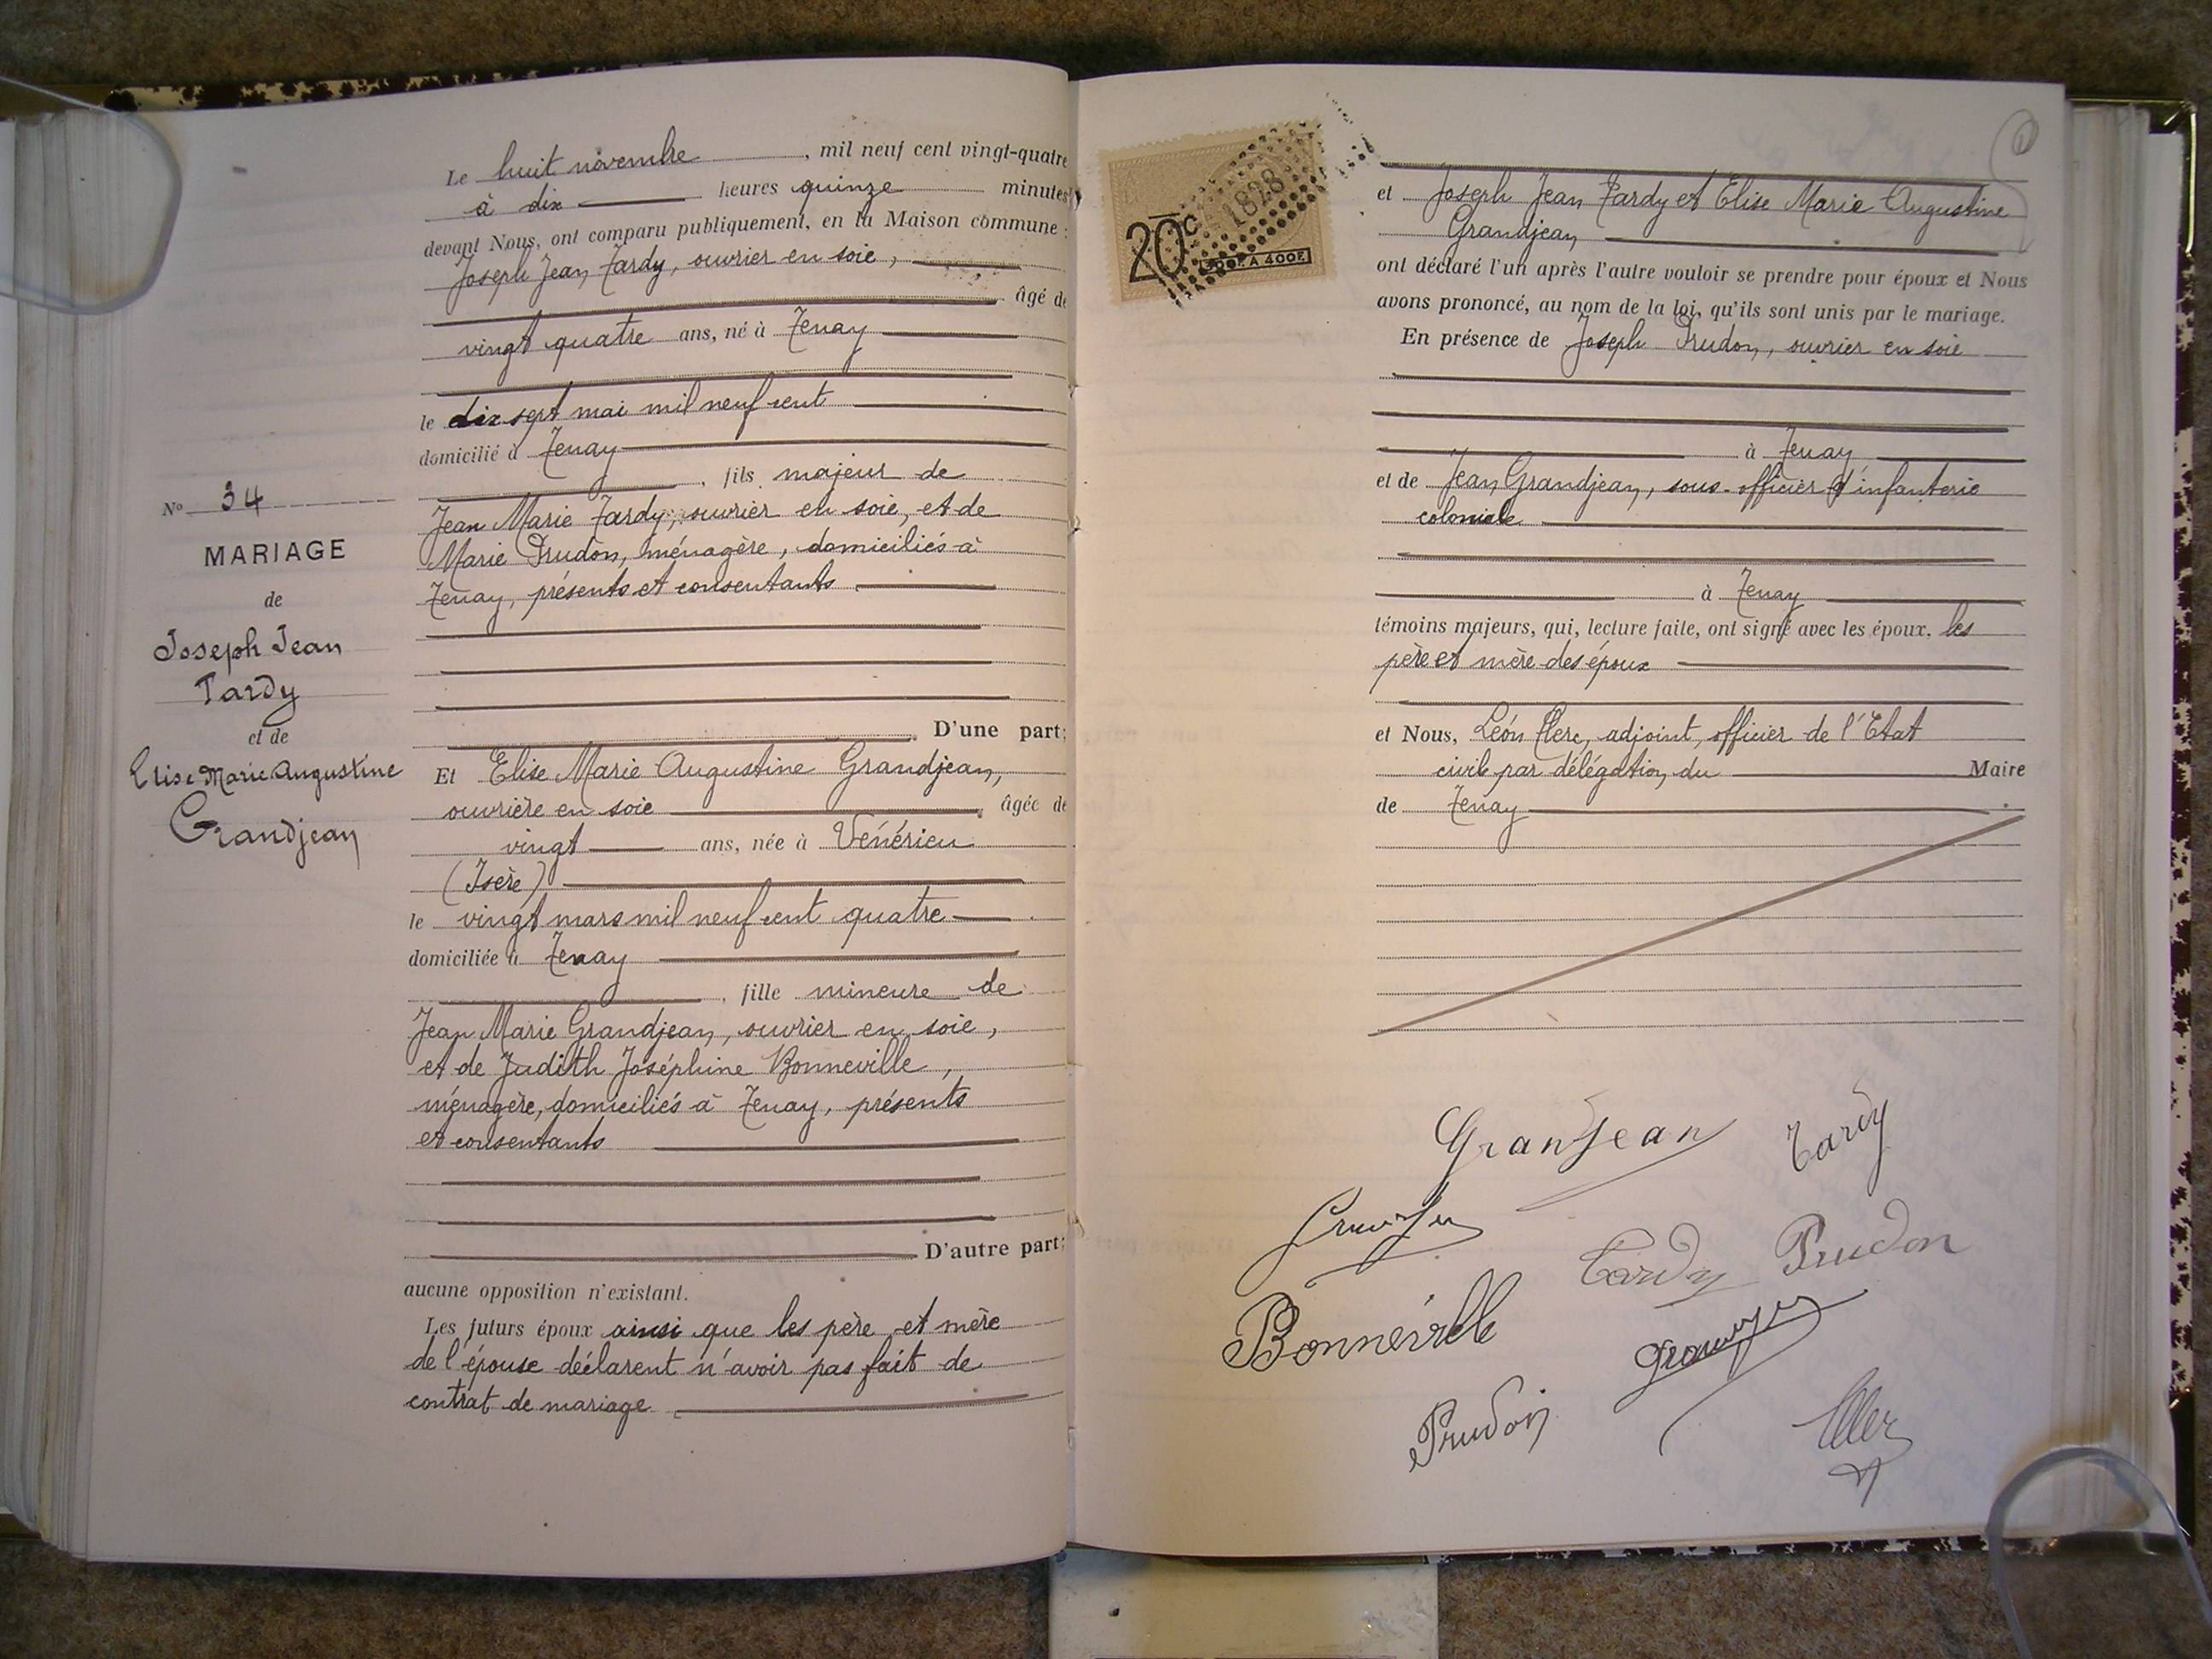 Le huit novembre, mil neuf cent vingt-quatre
à dix heures quinze minutes,
devant Nous, ont comparu publiquement, en la Maison commune :
Joseph Jean Tardy, ouvrier en soie,
âgé de
vingt quatre ans, né à Tenay
le dix sept mai mil neuf cent
domicilié à Tenay
, fils majeur de
Jean Marie Tardy, ouvrier en soie, et de
Marie Prudon, ménagère, domiciliés à
Tenay, présents et consentants
D'une part;
Et Elise Marie Augustine Grandjean,
ouvrière en soie, âgée de
vingt ans, née à Vénérieu
(Isère)
le vingt mars mil neuf cent quatre
domiciliée à Tenay
, fille mineure de
Jean Marie Grandjean, ouvrier en soie,
et de Judith Joséphine Bonneville,
ménagère, domiciliés à Tenay, présents
et consentants
D'autre part;
aucune opposition n'existant.
Les futurs époux ainsi que les père et mère
de l'épouse déclarent n'avoir pas fait de
contrat de mariage
No 34
MARIAGE
de
Joseph Jean
Tardy
et de
Elise Marie Augustine
Grandjean
20c
1828
A 400F
et Joseph Jean Tardy et Elise Marie Augustine
Grandjean
ont déclaré l'un après l'autre vouloir se prendre pour époux et Nous
avons prononcé, au nom de la loi, qu'ils sont unis par le mariage.
En présence de Joseph Prudon, ouvrier en soie
à Tenay
et de Jean Grandjean, sous-officier d'infanterie
coloniale
à Tenay
témoins majeurs, qui, lecture faite, ont signé avec les époux, les
père et mère des époux
et Nous, Léon Clerc, adjoint, officier de l'Etat
civil par délégation du Maire
de Tenay
GranJean Tardy
Tardy Prudon
Bonneville
Prudon